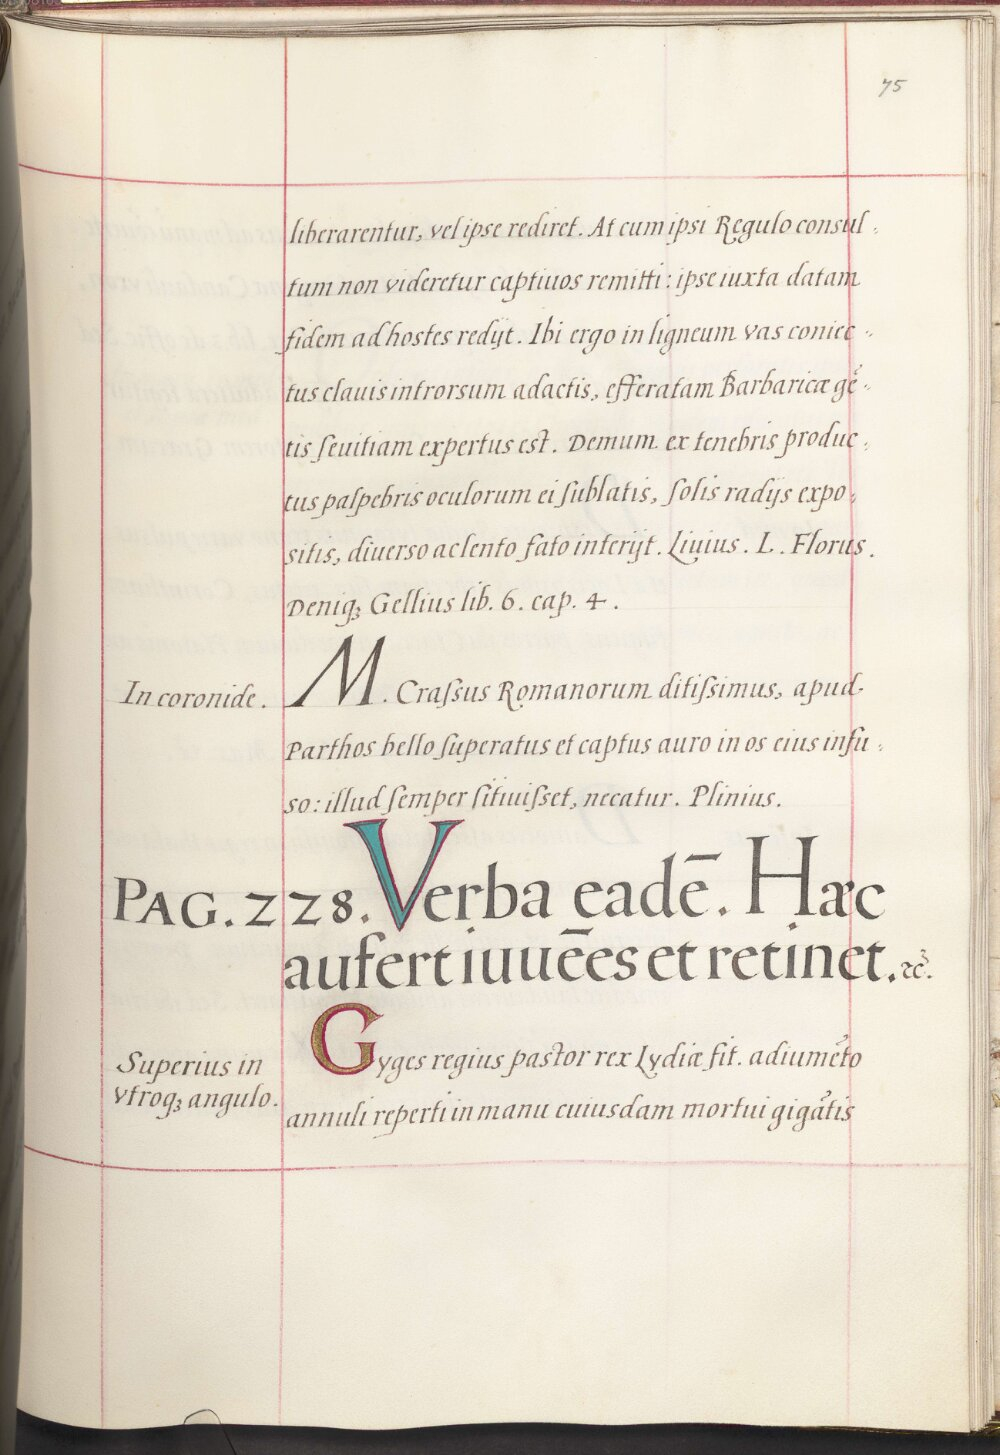 75
liberarentur, vel ipse rediret. At cum ipsi Regulo consul-
tum non videretur captiuos remitti: ipse iuxta datam
fidem ad hostes redijt. Ibi ergo in ligneum vas coniec-
tus clauis introrsum adactis, efferatam Barbaricæ gē-
tis seuitiam expertus est. Demum ex tenebris produc-
tus palpebris oculorum ei sublatis, solis radijs expo-
sitis, diuerso ac lento fato interijt. Liuius. L. Florus.
Deniqꝫ Gellius lib. 6. cap. 4.
In coronide. M. Crassus Romanorum ditissimus, apud
Parthos bello superatus et captus auro in os eius infu-
so: illud semper sitiuisset, necatur. Plinius.
PAG. 228. Verba eadē. Hæc
aufert iuuēes et retinet. ⁊c̃.
Superius in
vtroqꝫ angulo.
Gyges regius pastor rex Lydiæ fit. adiumēto
annuli reperti in manu cuiusdam mortui gigātis